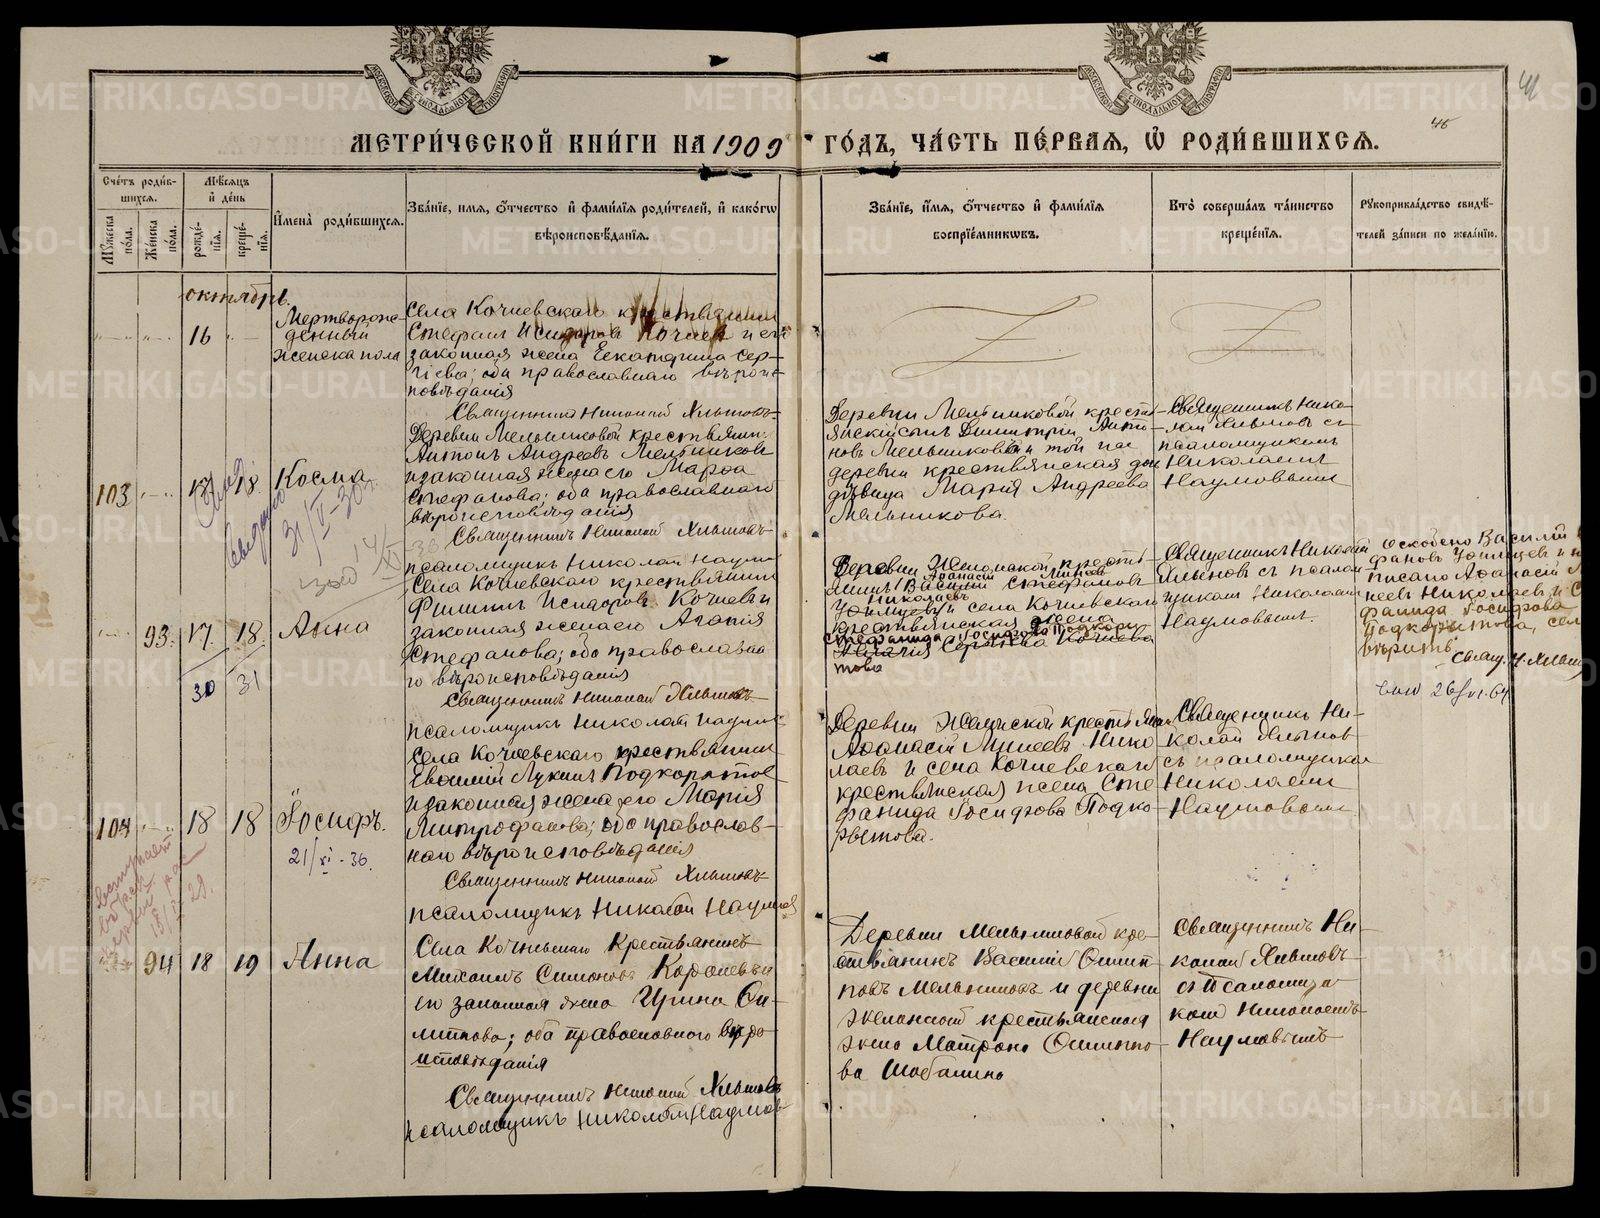 МЕТРИ́ЧЕСКОЙ КНИ́ГИ НА 1909 ГО́ДЪ, ЧА́СТЬ ПЕ́РВАЯ, Ѽ РОДИ́ВШИХСЯ.
Сче́тъ роди́в-
шихся.
Мꙋ́жеска по́ла.
Же́нска по́ла.
Мѣ́сяцъ и де́нь
рожде́-
нїя.
креще́-
нїя.
И҆мена̀ роди́вшихся.
Зва́нїе, имя, о́тчество и фами́лїя роди́телей, и како́гѡ
вѣроисповѣ́данїя.
Зва́нїе, и́мя, о́тчество и фами́лїя
воспрїе́мникѡвъ.
Кто̀ соверша́лъ та́инство
креще́нїя.
Рꙋкоприкла́дство свидѣ́-
телей за́писи по жела́нїю.
октябрь.
16
Мертворож-
денный
женска пола
Села Кочневскаго крестьянин
Стефан Исидоровъ Кочнев и его
законная жена Екатерина Сер-
гіева; оба православнаго вѣроис-
повѣданія
Священникъ Николай Хлынов
103
17
18
Косма
31/V-30г.
Деревни Мельниковой крестьянин
Антонъ Андреевъ Мельников
и законная жена его Марѳа
Стефанова; оба православнаго
вѣроисповѣданія
Священникъ Николай Хлыновъ
псаломщикъ Николай Наумов
Деревни Мельниковой кресть-
янскій сынъ Димитрій Анто-
новъ Мельников и той же
деревни крестьянская дочь
дѣвица Марія Андреева
Мельникова.
Священникъ Нико-
лай Хлыновъ съ
псаломщикомъ
Николаемъ
Наумовымъ
93
17
18
Анна
30
31
Села Кочневскаго крестьянин
Филиппъ Исидоровъ Кочнев и
законная жена его Агапія
Стефанова; оба православна
го вѣроисповѣданія
Священникъ Николай Хлыновъ
псаломщикъ Николай Наумов
Деревни Желонской кресть
янинъ Василій Стефановъ
Аѳанасій Минеевъ
Николаевъ
и села Кочневскаго
крестьянская жена
Стефанида Іосифова Подкоры
това
Священникъ Николай
Хлыновъ съ псалом
щикомъ Николаем
Наумовымъ.
оскоблено Василій
писано Аѳанасій
неевъ Николаевъ и С
фанида Іосифова
Подкорытова,
вѣрить
Свящ. Н. Хлынов
104
18
18
Іосифъ.
21/XI-36.
Села Кочневскаго крестьянин
Евѳимій Лукинъ Подкорытов
и законная жена его Марія
Митрофанова; оба православ-
наго вѣроисповѣданія
Священникъ Николай Хлыновъ
псаломщикъ Николай Наумов
Деревни Желонской крестьянин
Аѳанасій Минеевъ Нико
лаевъ и села Кочневскаго
крестьянская жена Сте
фанида Іосифова Подко-
рытова.
Священникъ Ни-
колай Хлынов
съ псаломщиком
Николаемъ
Наумовымъ
94
18
19
Анна
Села Кочневскаго Крестьянинъ
Михаилъ Симоновъ Королевъ и
его законная жена Ирина Фи-
липпова; оба православнаго вѣро
исповѣданія
Священникъ Николай Хлыновъ
псаломщикъ Николай Наумов
Деревни Мельниковой кре-
стьянинъ Василій Филип
повъ Мельниковъ и деревни
Желонской крестьянская
жена Матрона Филиппо
ва Шабалина
Священникъ Ни-
колай Хлыновъ
съ Псаломщи
комъ Николаемъ
Наумовымъ
METRIKI.GASO-URAL.RU